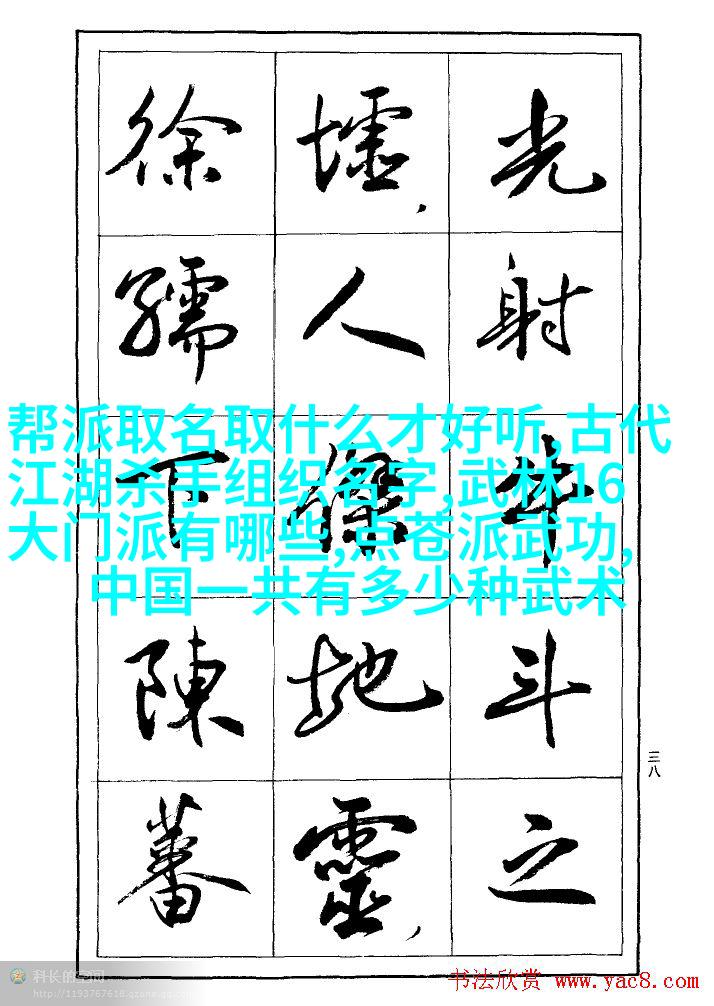 光射牛斗之
墟,人傑地靈,
徐孺下陳蕃
帮派取名取什么才好听,古代
江湖杀手组织名字,武林16
大门派有哪些,点苍派武功,
中国一共有多少种武术
三八
科长的空间
书法欣赏 www.yac8.com